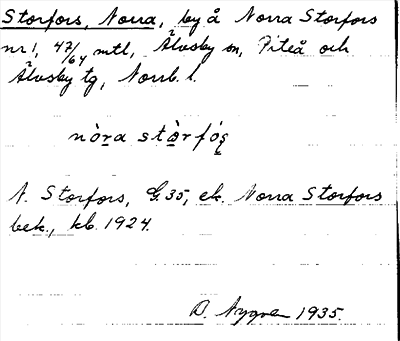 Storfors, Norra, by å Norra Storfors
nr 1, 47/64 mtl, Älvsby sn, Piteå och
Älvsby tg, Norrb. l.
nòra stòrfóş
N. Storfors, G. 35, ek. Norra Storfors
bek., kb. 1924.
D. Nygren 1935.